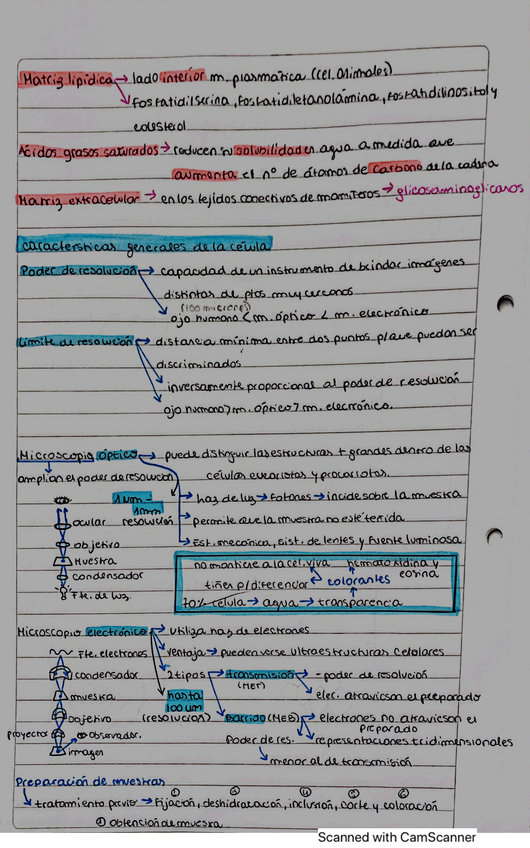 Matriz lipídica → lado interior m. plasmática (cel. animales)
fosfatidilserina, fosfatidiletanolámina, fosfatidilinositol y
colesterol
Acidos grasos saturados → reducen su solubilidad en agua a medida que
aumenta el nº de átomos de carbono de la cadena
Matriz extracelular → en los tejidos conectivos de mamiferos → glicosaminoglicanos
características generales de la célula
Poder de resolución → capacidad de un instrumento de brindar imágenes
distintas de ptos muy cercanos
(100 micrones)
ojo humano < m. óptico < m. electrónico
Limite de resolución → distancia mínima entre dos puntos p/ que puedan ser
discriminados
inversamente proporcional al poder de resolución
ojo humano > m. óptico > m. electrónico.
Microscopio óptico → puede distinguir las estructuras + grandes dentro de las
amplian el poder de resolución células eucariotas y procariotas.
1mm → haz de luz → fotones → incide sobre la muestra
ocular resolución → permite que la muestra no esté teñida
objetivo → Est. mecánica, sist. de lentes y fuente luminosa
Muestra no mantiene a la cel. viva hematoxidina y
eosina
condensador tiñen p/ diferenciar ← colorantes
Fte. de luz. 70% célula → agua → transparencia
Microscopio electrónico → utiliza haz de electrones
Fte. electrones ventaja → pueden verse ultraestructuras celulares
condensador 2 tipos → transmisión → - poder de resolución
(MET)
muestra hasta elec. atraviesan el preparado
100 um
objetivo (resolución) barrido (MEB) → electrones no atraviesan el
preparado
proyector observador. Poder de res. representaciones tridimensionales
imagen menor al de transmisión
Preparación de muestras
② ③ ④ ⑤ ⑥
tratamiento previo → fijación, deshidratación, inclusión, corte y coloración
① obtención de muestra
Scanned with CamScanner